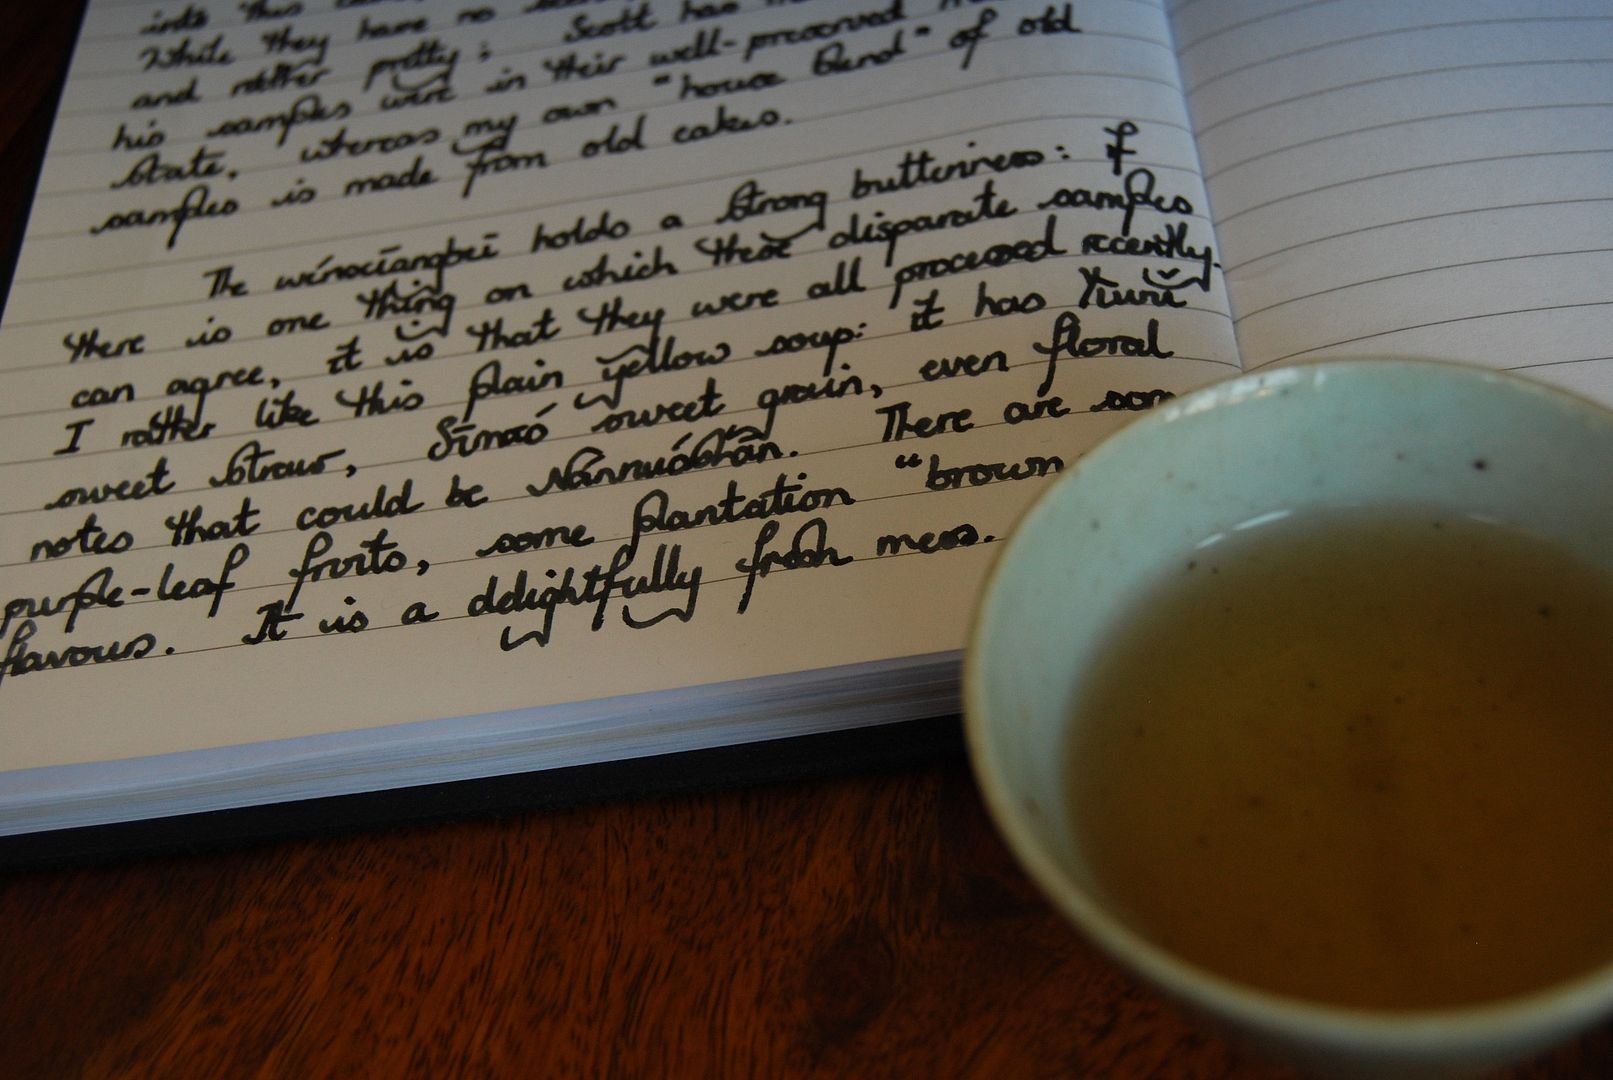 into this
While they have no
and rather pretty; Scott has
his samples were in their well-preserved
state, whereas my own "house blend" of old
samples is made from old cakes.
The wénxiāngbēi holds a strong butteriness: if
there is one thing on which these disparate samples
can agree, it is that they were all processed recently.
I rather like this plain yellow soup: it has Yiwu
sweet straw, Sīmáo sweet grain, even floral
notes that could be Nánnuòshān. There are som
purple-leaf fruits, some plantation "brown
flavours. It is a delightfully fresh mess.